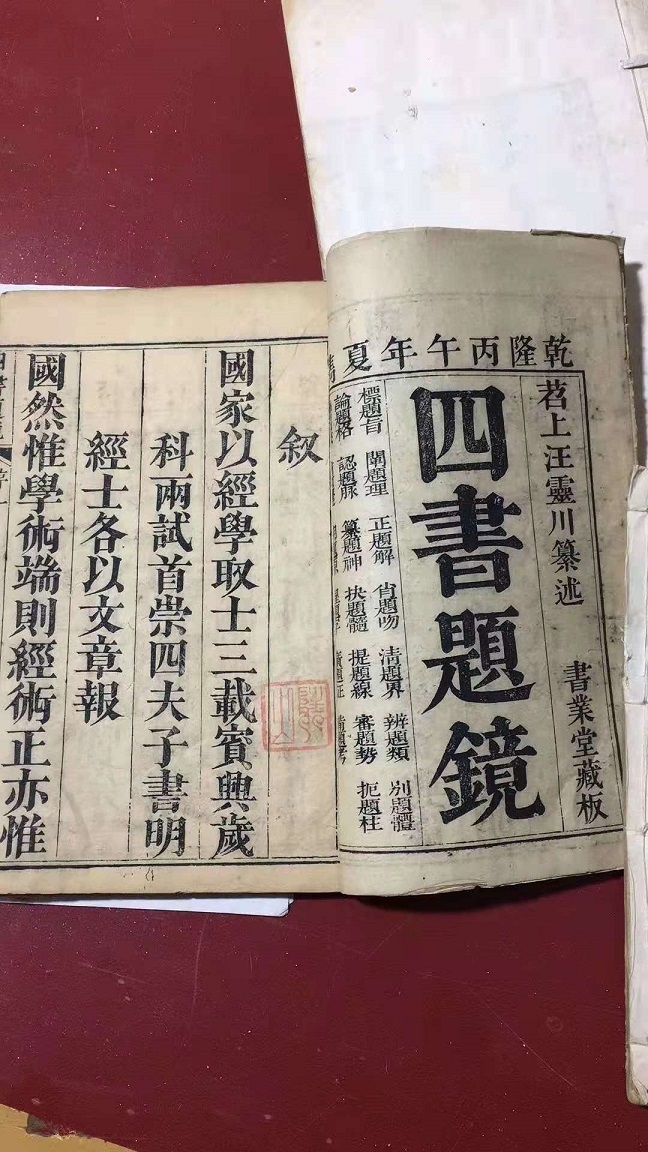 乾隆丙午年夏
苕上汪靈川纂述
書業堂藏板
四書題鏡
標題旨 闡題理 正題解 省題吻 清題界 辨題類 別題體
論題格 認題脉 纂題神 抉題髓 提題線 審題勢 扼題柱
叙
國家以經學取士三載賓興歲
科兩試首崇四夫子書明
經士各以文章報
國然惟學術端則經術正亦惟